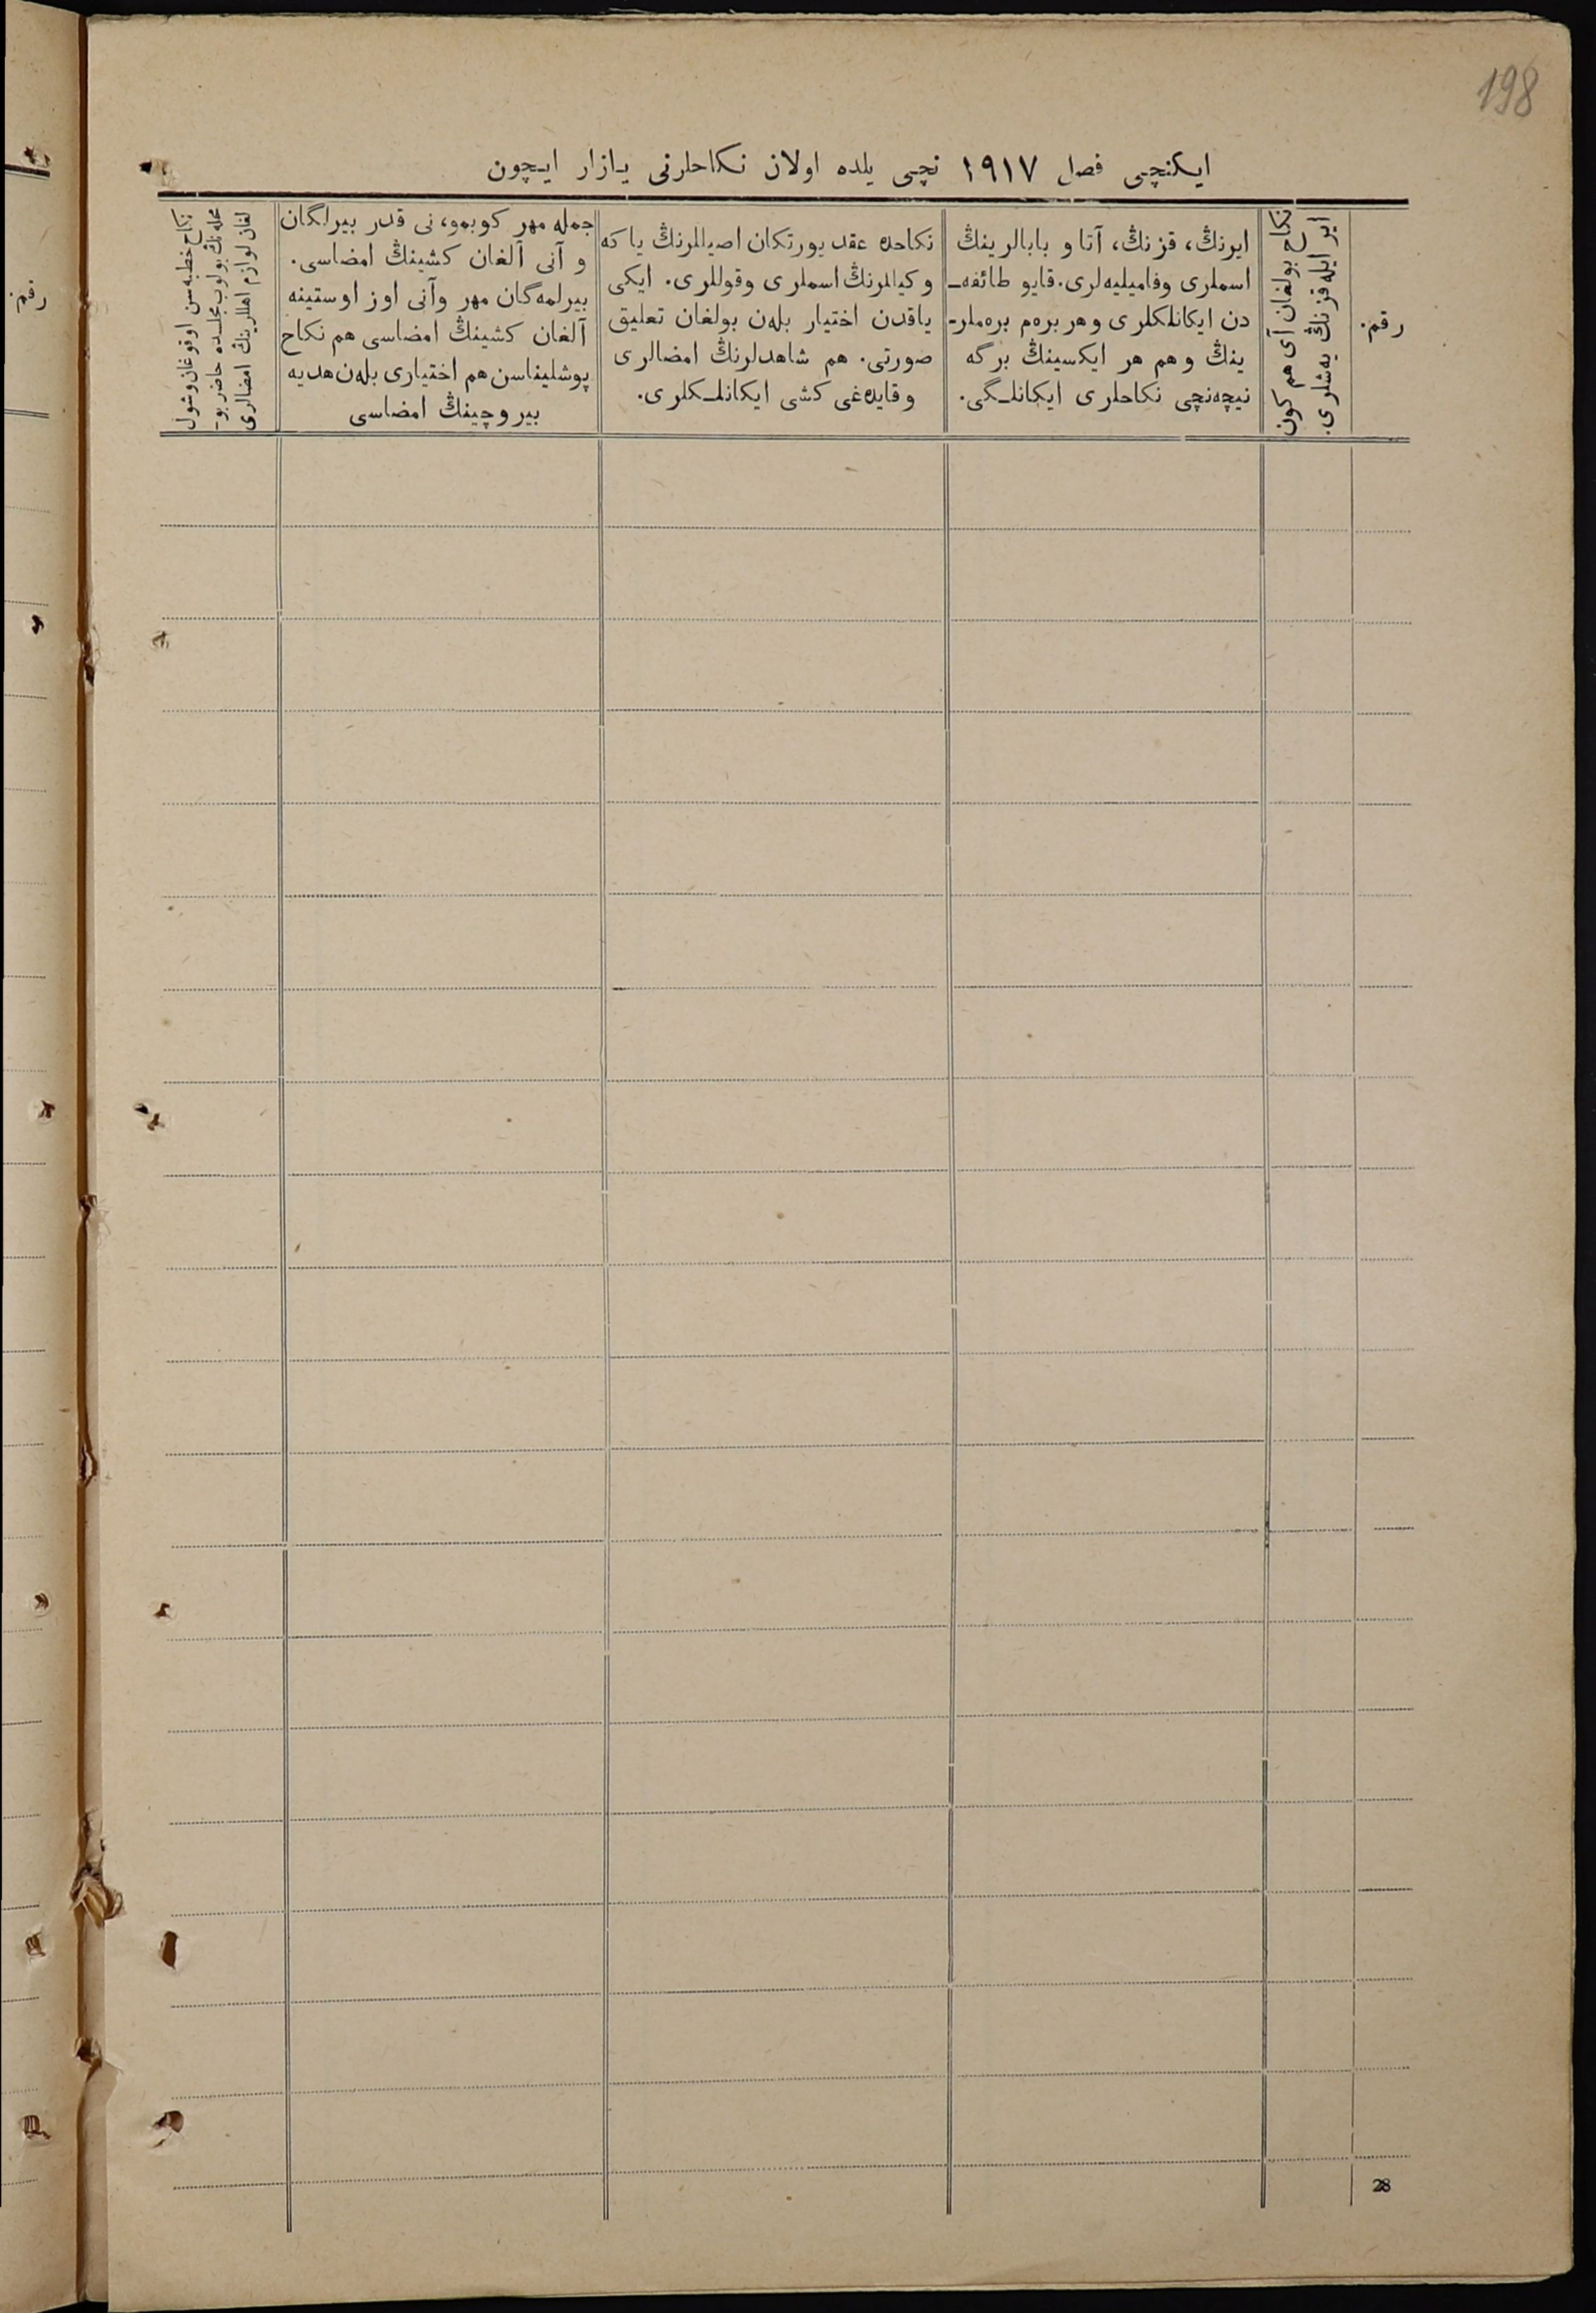 198
ایکنچی فصل ۱۹۱۷ نچی یلده اولان نکاحلرنی یازار ایچون
رقم.
ایر ایله قزنڭ یه‌شلری.
نکاح بولغان آی هم کون
ایرنڭ، قزنڭ، آتا و بابالرینڭ
اسملری وفامیلیه‌لری. قایو طائفه‌ـ
دن ایکانلکلری وهر بره‌م بره‌ملر-
ینڭ وهم هر ایکسینڭ برگه
نیچه‌نچی نکاحلری ایکانلـگی.
نکاحده عقد یورتکان اصیللرنڭ یا که
وکیللرنڭ اسملری وقوللری. ایکی
یاقدن اختیار بله‌ن بولغان تعلیق
صورتی. هم شاهدلرنڭ امضالری
وقایده‌غی کشی ایکانلـکلری.
جمله مهر کوبمو، نی قدر بیرلگان
و آنی آلغان کشینڭ امضاسی.
بیرلمه‌گان مهر وآنی اوز اوستینه
آلغان کشینڭ امضاسی هم نکاح
پوشلیناسن هم اختیاری بله‌ن هدیه
بیروچینڭ امضاسی
نکاح خطبه‌سن اوقوغان وشول
محله‌نڭ بولوب مجلسده حاضر بو-
لغان لوازم اهللرینڭ امضالری
رقم.
28